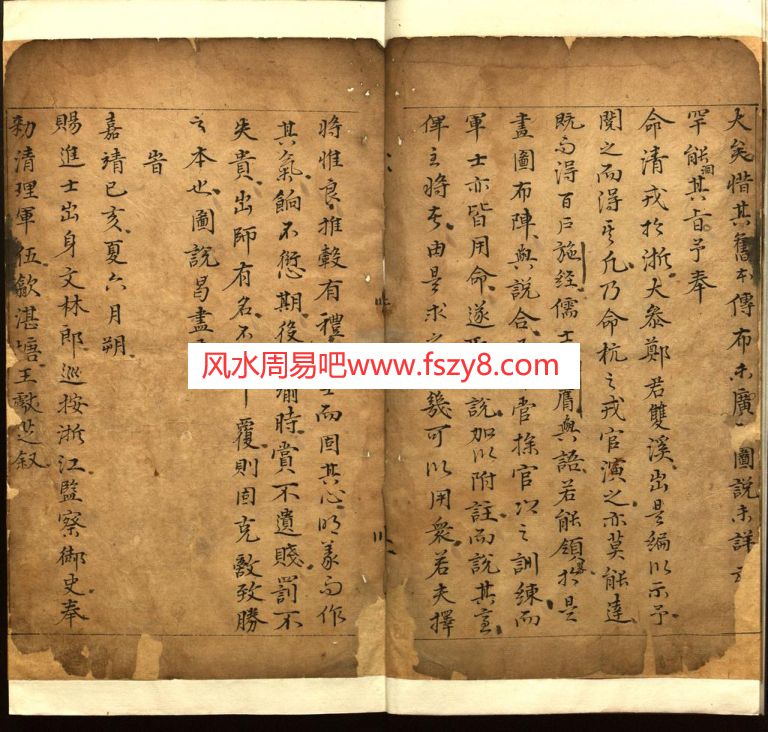 大矣惜其舊本傳布未廣圖說未詳
罕能洞其旨予奉
命清戎於浙大參鄭君雙溪出是編以示予
閱之而得乃命杭之戎官演之亦莫能達
既而得百戶施經儒士膺與語若能領於是
畫圖布陣與說合掌操官以之訓練而
軍士亦皆用命遂說加以附註而說其
俾主將由是求之幾可以用衆若夫擇
將惟良推轂有禮而固其心明義而作
其氣餉不愆期役踰時賞不遺賤罰不
失貴出師有名不覆則固克敵致勝
之本也圖說曷盡
旹
嘉靖己亥夏六月朔
賜進士出身文林郎巡按浙江監察御史奉
勑清理軍伍歙湛塘王獻芝叙
风水周易吧www.fszy8.com